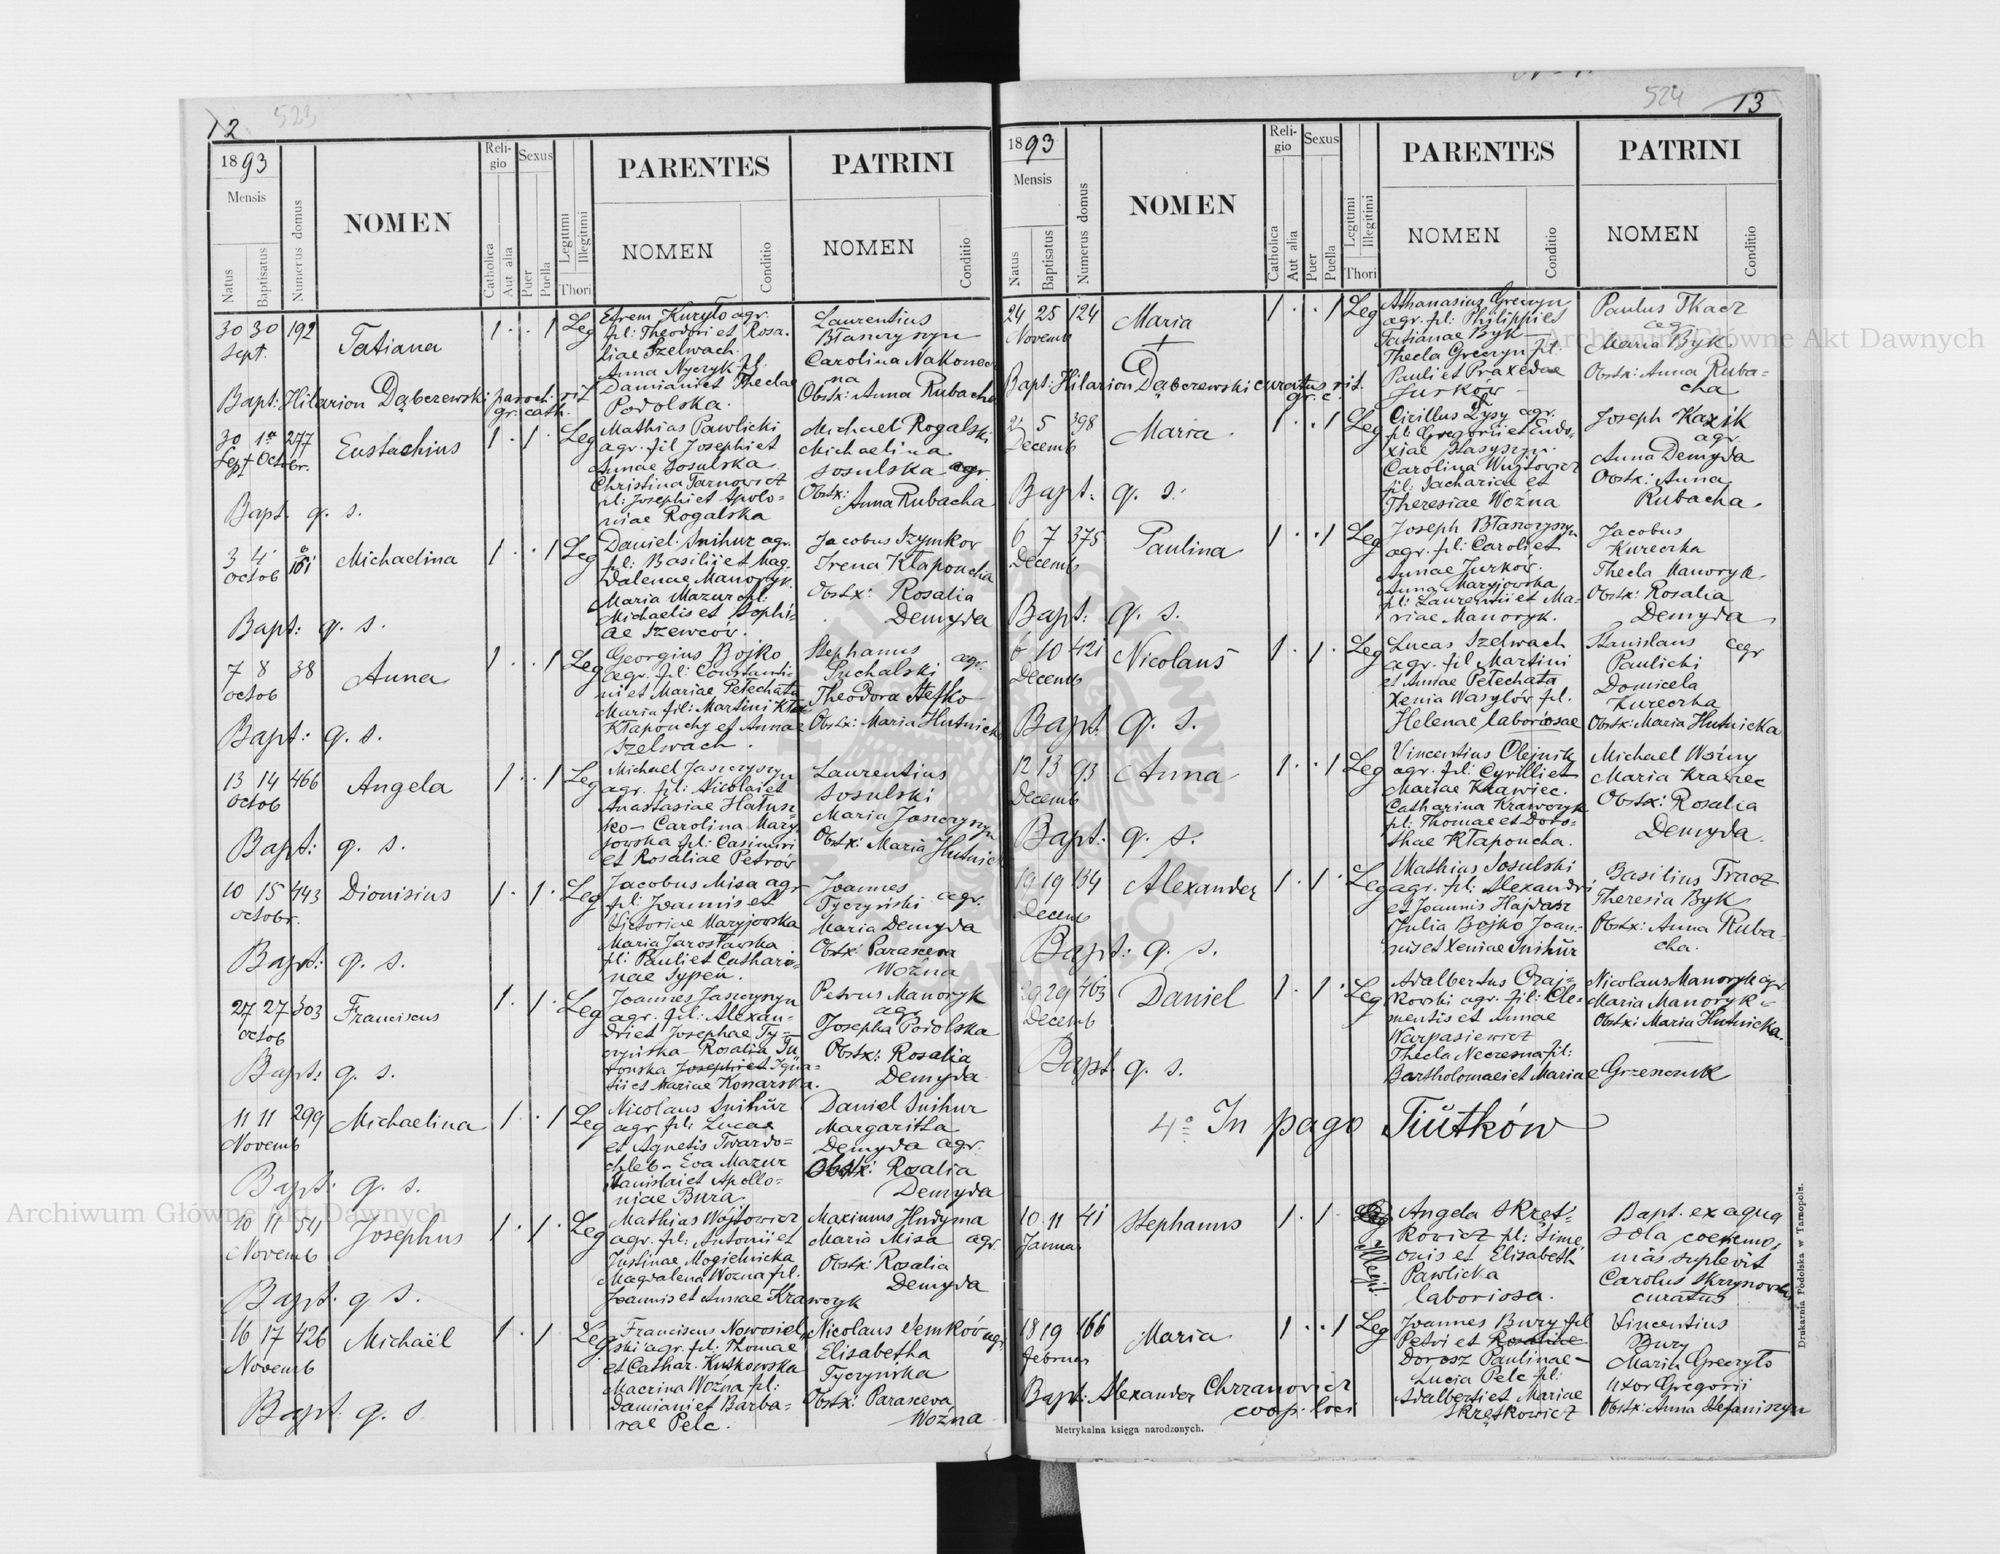 12
523
1893
Mensis
Natus
Baptisatus
Numerus domus
NOMEN
Religio
Catholica
Aut alia
Sexus
Puer
Puella
Legitimi
Illegitimi
Thori
PARENTES
NOMEN
Conditio
PATRINI
NOMEN
Conditio
30 30 192
Sept.
Tatiana
1 · · 1 Leg
Efrem Kuryło agr.
fil: Theodori et Rosa-
liae Szelwach.
Anna Nyczyk fil.
Damiani et Theclae
Podolska.
Laurentius
Błaszczyszyn
Carolina Nakonecz
na
Obstx: Anna Rubacha
Bapt: Hilarion Dąbczewski paroch. rit.
gr. cath.
30 1a 277
Sept Octobr.
Eustachius
1 · 1 · Leg
Mathias Pawlicki
agr. fil Josephi et
Annae Sosulska
Christina Tarnowicz
fil: Josephi et Apolo-
niae Rogalska
Michael Rogalski
Michaelina
Sosulska agr.
Obstx:
Anna Rubacha
Bapt. q. s.
3 4 161
Octob
Michaelina
1 · · 1 Leg
Daniel Snihur agr.
fil: Basilii et Mag-
dalenae Manoryk.
Maria Mazur fil:
Michaelis et Sophi-
ae Szewców.
Jacobus Szymkov
Irena Kłaponcha
Obstx: Rosalia
Demyda
Bapt: q. s.
7 8 38
Octob
Anna
1 · · 1 Leg
Georgius Bojko
agr. fil: Constanti-
ni et Mariae Pełechata
Maria fil: Martini
Kłaponchy et Annae
Szelwach.
Stephanus
Suchalski agr.
Theodora Stefko
Obstx: Maria Hutnicka
Bapt: q. s.
13 14 466
Octob
Angela
1 · · 1 Leg
Michael Jaszczyszyn
agr. fil: Nicolai et
Anastasiae Hałusz-
ko – Carolina Mary-
jowska fil: Casimiri
et Rosaliae Petrów
Laurentius
Sosulski
Maria Jaszczyszyn
Obstx: Maria Hutnick
Bapt: q. s.
10 15 443
Octobr.
Dionisius
1 · 1 · Leg
Jacobus Misa agr
fil: Joannis et
Victoriae Maryjowska
Maria Jarosławska
fil: Pauli et Cathari-
nae Sypeń.
Joannes
Tyczyński agr.
Maria Demyda
Obstx: Parascewa
Woźna
Bapt: q. s.
27 27 303
Octob
Franciscus
1 · 1 · Leg
Joannes Jaszczyszyn
agr. fil: Alexan-
dri et Josephae Ty-
czyńska – Rosalia
Josephi et Igna-
tii et Mariae Konarska.
Petrus Manoryk
agr
Josepha Podolska
Obstx: Rosalia
Demyda
Bapt: q. s.
11 11 299
Novemb
Michaelina
1 · · 1 Leg
Nicolaus Snihur
agr fil: Lucae
et Agnetis Twardo-
chleb – Eva Mazur
Stanislai et Apollo-
niae Bura.
Daniel Snihur
Margaritha
Demyda agr.
Obstx: Rosalia
Demyda
Bapt: q. s.
10 11 54
Novemb
Josephus
1 · 1 · Leg
Mathias Wójtowicz
agr. fil: Antonii et
Justinae Mogielnicka
Magdalena Woźna fil.
Joannis et Annae Krawczyk
Maximus Hudyma
Maria Misa agr.
Obstx: Rosalia
Demyda
Bapt. q s.
16 17 426
Novemb
Michaël
1 · 1 Leg
Franciscus Nowosiel
ski agr. fil: Thomae
et Cathar. Kutkowska
Macrina Woźna fil:
Damiani et Barba-
rae Pelc.
Nicolaus Semków agr
Elisabetha
Tyczyńska
Obstx: Parascewa
Woźna
Bapt: q. s.
524
13
1893
Mensis
Natus
Baptisatus
Numerus domus
NOMEN
Religio
Catholica
Aut alia
Sexus
Puer
Puella
Legitimi
Illegitimi
Thori
PARENTES
NOMEN
Conditio
PATRINI
NOMEN
Conditio
24 25 124
Novemb
Maria
1 · · 1 Leg
Athanasius Greczyn
agr. fil: Philippi et
Tatianae Byk
Thecla Greczyn fil:
Pauli et Praxedae
Jurków
Paulus Tkacz
agr
Maria Byk
Obstx: Anna Ruba-
cha
Bapt: Hilarion Dąbczewski curatus rit.
gr. c.
5 398
Decemb
Maria
1 · · 1 Leg
Cirillus Łysy agr.
fil: Gregorii et Eudo-
xiae Stasyszyn.
Carolina Wujtowicz
fil: Zachariae et
Theresiae Woźna
Joseph Kazik
agr.
Anna Demyda
Obstx: Anna
Rubacha
Bapt: q. s.
6 7 375
Decemb
Paulina
1 · · 1 Leg
Joseph Błaszczyszyn
agr. fil: Caroli et
Annae Jurków.
Anna Maryjowska
fil: Laurentii et Ma-
riae Manoryk.
Jacobus
Kureczka
Thecla Manoryk
Obstx: Rosalia
Demyda
Bapt: q. s.
6 10 421
Decemb
Nicolaus
1 · 1 · Leg
Lucas Szelwach
agr. fil Martini
et Annae Pełechata
Xenia Wasylów fil.
Helenae laboriosae
Stanislaus agr
Paulicki
Domicela
Kureczka
Obstx: Maria Hutnicka
Bapt. q. s.
12 13 93
Decemb
Anna
1 · · 1 Leg
Vincentius Olejnik
agr. fil: Cyrilli et
Mariae Krawiec.
Catharina Krawczyk
fil: Thomae et Doro-
thae Kłaponcha.
Michael Woźny
Maria Krawiec
Obstx: Rosalia
Demyda
Bapt: q. s.
19 19 134
Decemb
Alexander
1 · 1 · Leg
Mathias Sosulski
agr. fil: Alexandri
et Joannis Hajdasz
Julia Bojko Joan-
nis et Xeniae Snihur
Basilius Tracz
Theresia Byk
Obstx: Anna Ruba-
cha.
Bapt: q. s.
29 29 463
Decemb
Daniel
1 · 1 · Leg
Adalbertus Czaj-
kowski agr. fil: Cle-
mentis et Annae
Karpasiewicz
Thecla Neczesna fil:
Bartholomaei et Mariae Grzeszczuk
Nicolaus Manoryk agr
Maria Manoryk
Obstx: Maria Hutnicka.
Bapt. q. s.
4o In pago Tiutków
10 11 41
Januar
Stephanus
1 · 1 ·
Illegit
Angela Skręt-
kowicz fil: Sime-
onis et Elisabeth
Pawlicka
laboriosa.
Bapt. ex aqua
sola coeremo-
nias suplevit
Carolus Skrzynowski
curatus
18 19 166
Februar
Maria
1 · · 1 Leg
Joannes Bury fil
Petri et Rosaliae
Dorosz Paulinae –
Lucia Pelc fil:
Adalberti et Mariae
Skrętkowicz
Vincentius
Bury
Maria Greczyło
uxor Gregorii
Obstx: Anna Stefaniszyn
Bapt: Alexander Chrzanovicz
coop. loci
Metrykalna księga narodzonych.
Drukarnia Podolska w Tarnopolu.
Archiwum Główne Akt Dawnych
Archiwum Główne Akt Dawnych